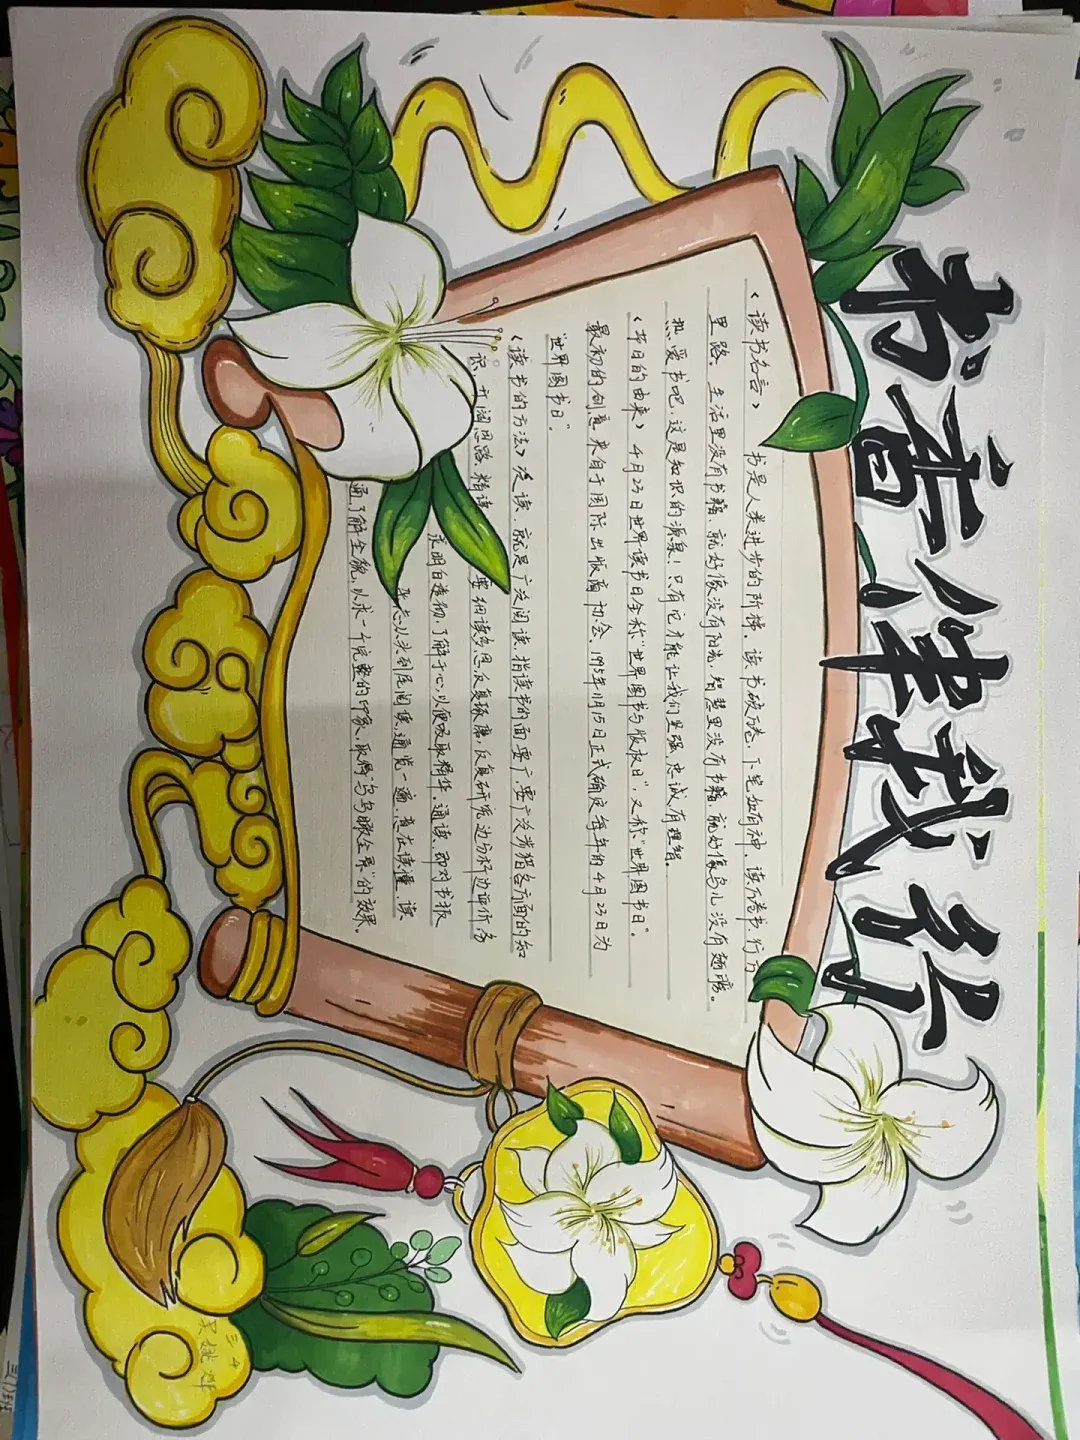 书香伴我行
《读书名言》 书是人类进步的阶梯、读书破万卷，下笔如有神、读万卷书，行万
里路。生活里没有书籍、就好像没有阳光，智慧里没有书籍，就好像鸟儿没有翅膀。
热爱书吧、这是知识的源泉！只有它才能让我们坚强、忠诚有理智。
《节日的由来》4月23日世界读书日全称“世界图书与版权日”，又称“世界图书日”。
最初的创意来自于国际出版商协会、1995年11月15日正式确定每年的4月23日为
“世界图书日”。
《读书的方法》泛读、就是广泛阅读、指读书的面要广要广泛涉猎各方面的知
识、开阔思路、精读 要细读多思，反复琢磨，反复研究边分析边评价务
求明白透彻，了解于心以便吸取精华、通读、即对书报
从头到尾阅读，通览一遍，意在读懂、读
通了解全貌，以求一个完整的印象，取得“鸟瞰全景”的效果。
三4